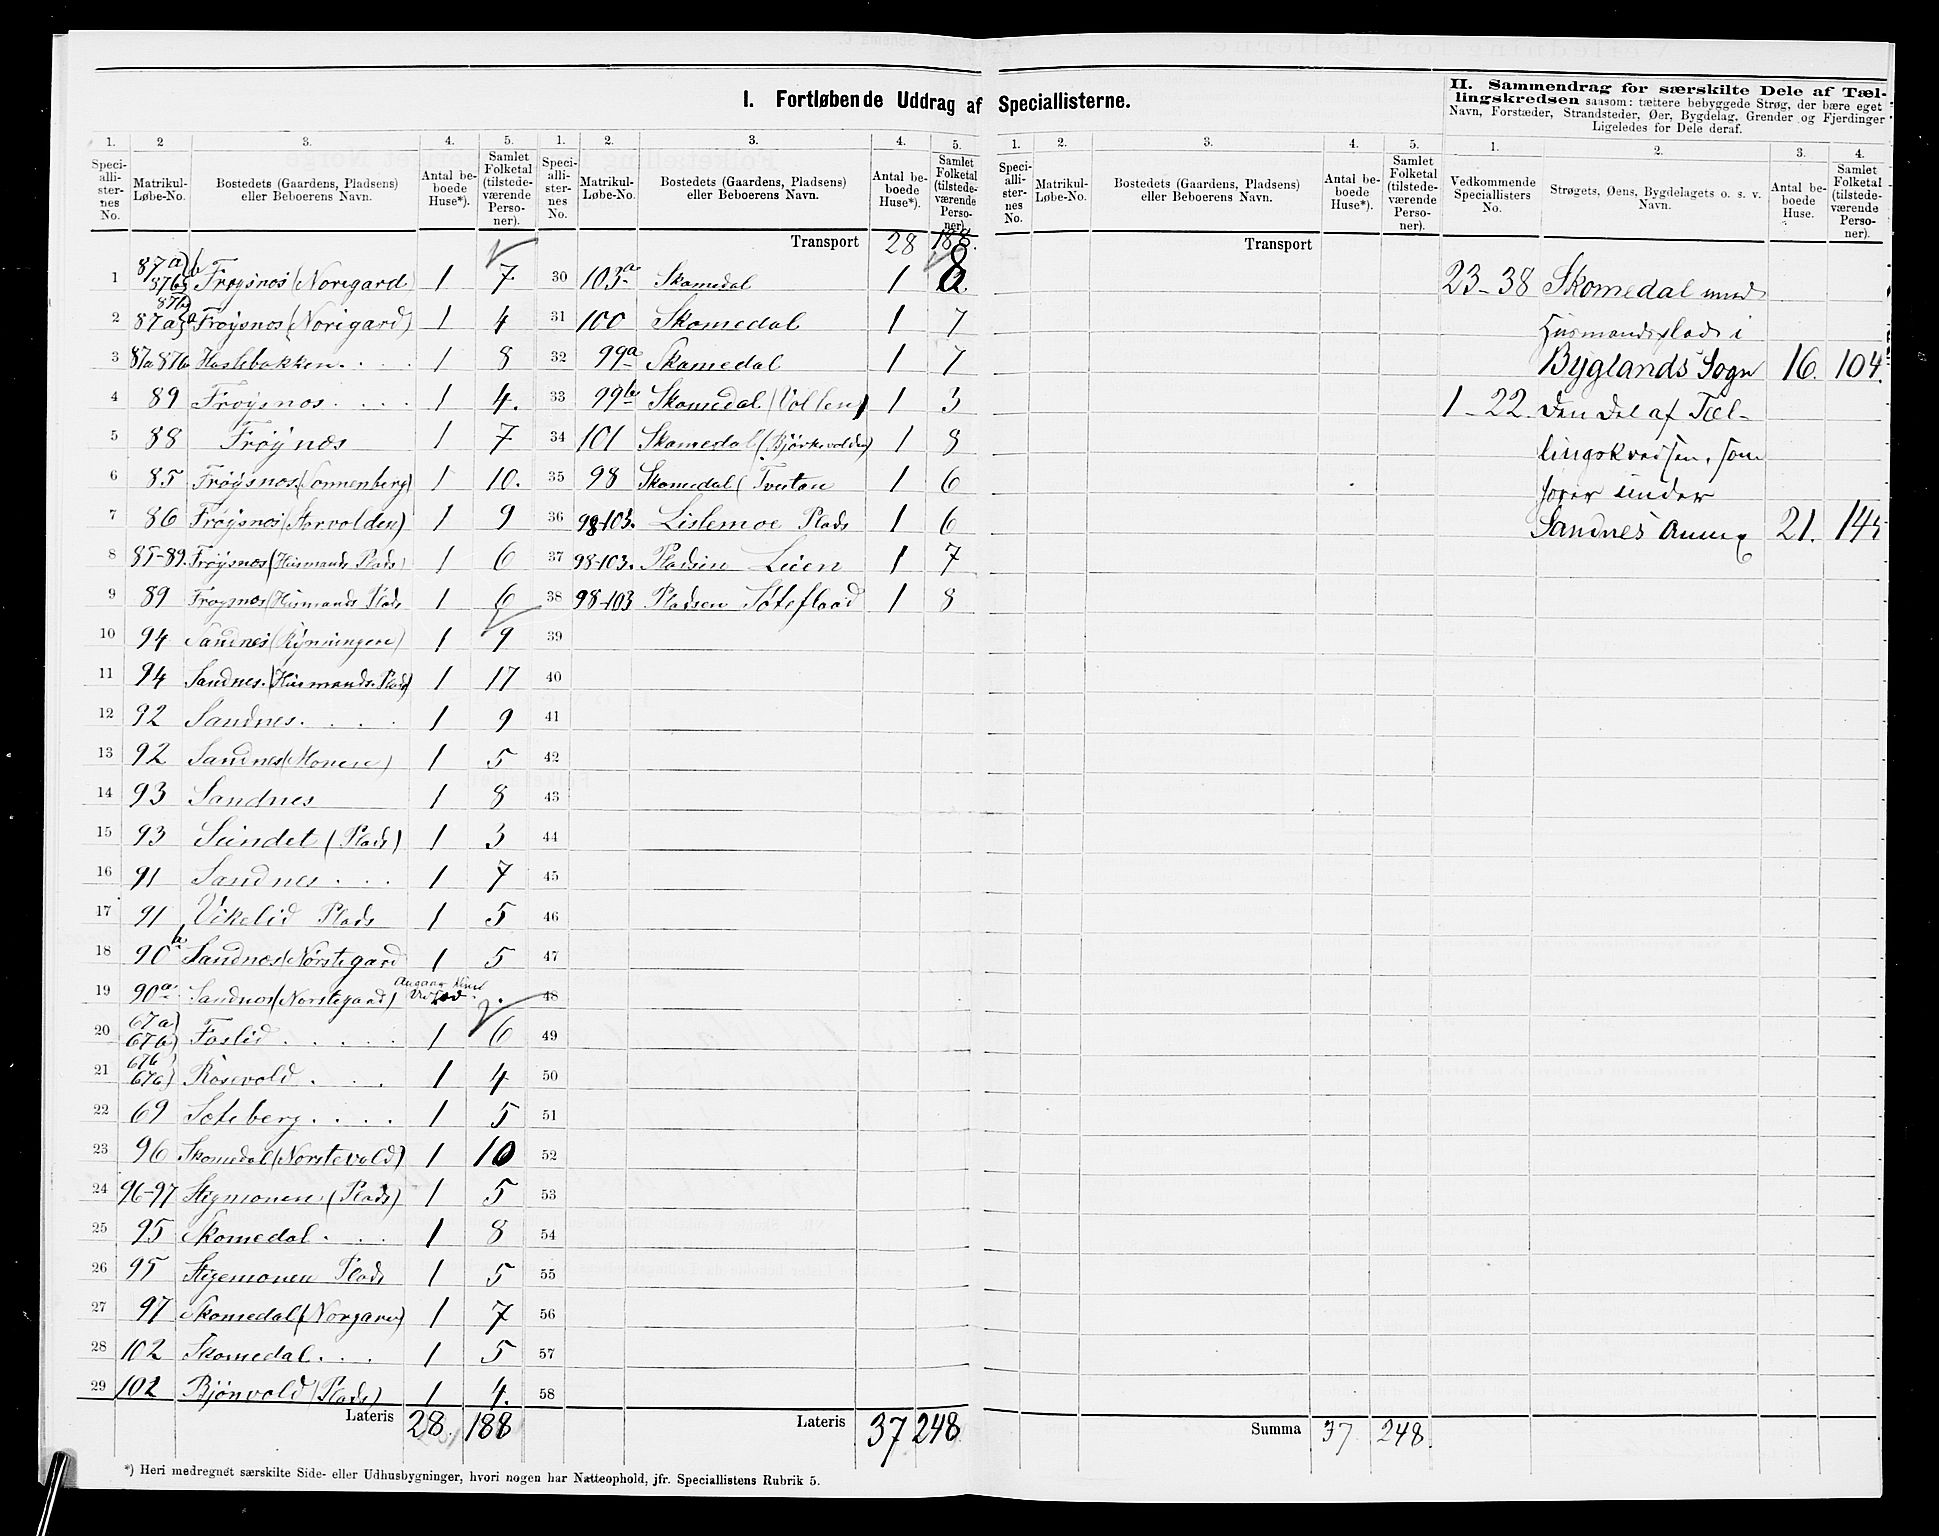 I. Fortløbende Uddrag af Speciallisterne.
II. Sammendrag for særskilte Dele af Tæl-
lingskredsen saasom: tættere bebyggede Strøg, der bære eget
Navn, Forstæder, Strandsteder, Øer, Bygdelag, Grender og Fjerdinger
Ligeledes for Dele deraf.
1. 2 3. 4. 5. 1. 2. 3. 4. 5. 1. 2. 3. 4. 5. 1. 2. 3. 4.
Speciallisternes No. Matrikul-Løbe-No. Bostedets (Gaardens, Pladsens) eller Beboerens Navn. Antal beboede Huse*). Samlet Folketal (tilstedeværende Personer).
Speciallisternes No. Matrikul-Løbe-No. Bostedets (Gaardens, Pladsens) eller Beboerens Navn. Antal beboede Huse*). Samlet Folketal (tilstedeværende Personer).
Speciallisternes No. Matrikul-Løbe-No. Bostedets (Gaardens, Pladsens) eller Beboerens Navn. Antal beboede Huse*). Samlet Folketal (tilstedeværende Personer).
Vedkommende Speciallisters No. Strøgets, Øens, Bygdelagets o. s. v. Navn. Antal beboede Huse. Samlet Folketal (tilstedeværende Personer).
1 87a 87b Frøysnæs (Norigard 1 7
2 87b 87a Frøysnos (Norigard) 1 4
3 87a 87b Haslebakken. 1 8
4 89 Frøysnos 1 4.
5 88 Frøynæs 1 7
6 85 Frøysnæs (Sonnenberg) 1 10.
7 86 Frøysnæs (Storvolden) 1 9
8 85-89. Frøysnæs (Husmands Plads) 1 6
9 89 Frøysnæs (Husmands Plads 1 6
10 94 Sandnes (Rynningen) 1 9
11 94 Sandnes. (Husmands Plads) 1 17
12 92 Sandnes. 1 9
13 92 Sandnes (Monen) 1 5
14 93 Sandnes 1 8
15 93 Sundet (Plads) 1 3
16 91 Sandnes 1 7
17 91 Vikelid Plads 1 5
18 90b Sandnæs (Norstegard 1 5
19 90a Sandnos (Norstegaard)
20 67a) 67b) Foslid 1 6
21 67b 67a) Rosevold 1 4
22 69 Soteberg 1 5
23 96 Skomedal (Norstevold) 1 10
24 96-97 Stigmonen (Plads) 1 5
25 95 Skomedal 1 8
26 95 Stigemonen Plads 1 5
27 97 Skomedal (Norgard) 1 7
28 102 Skomedal 1 5
29 102 Bjönvold (Plads) 1 4.
Lateris 28. 188
Transport 28 188.
30 103a Skomedal 1 8
31 100 Skomedal 1 7
32 99a Skomedal 1 7
33 99b Skomedal (Vollen) 1 3
34 101 Skomedal (Bjørkevolden) 1 8
35 98 Skomedal (Tveitan 1 6
36 98-103. Lislemoe Plads 1 6
37 98-103. Pladsen Leien 1 7
38 98-103 Pladsen Soteflaad 1 8
39
40
41
42
43
44
45
46
47
48
49
50
51
52
53
54
55
56
57
58
Lateris 37 248
Transport
Summa 37 248.
23-38 Skomedal med
Husmandsplads i
Byglands Sogn 16. 104.
1-22. den Del af Tæl-
lingskredsen, som
hører under
Sandnes Annex 21. 144
*) Heri medregnet særskilte Side- eller Udhusbygninger, hvori nogen har Natteophold, jfr. Speciallistens Rubrik 5.